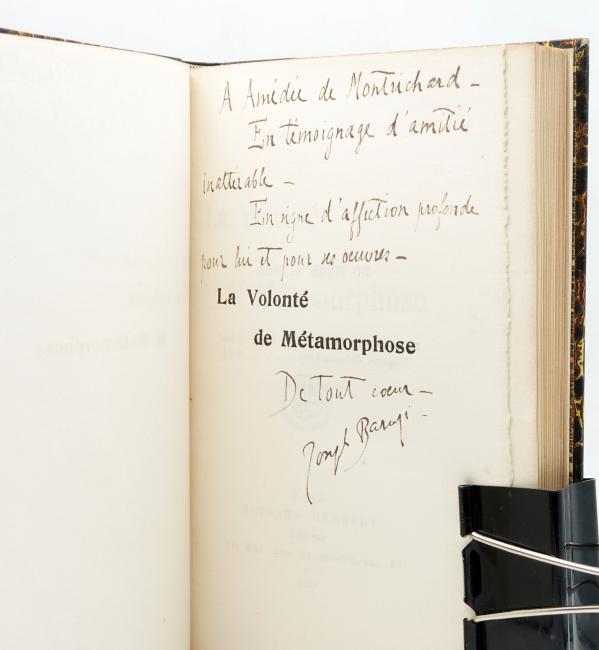 A Amédée de Montrichard –
En témoignage d'amitié
inaltérable –
En signe d'affection profonde
pour lui et pour ses oeuvres –
La Volonté
de Métamorphose
De tout coeur –
Joseph Baruzi –